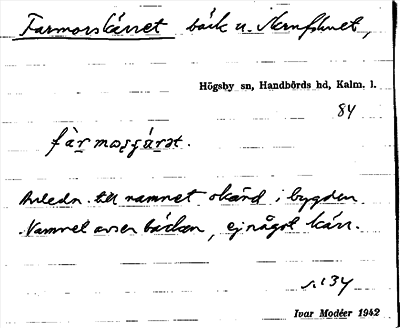 Farmorskärret bäck u. Kernfdunet,
Högsby sn, Handbörds hd, Kalm. l.
84
fàrmosɕä́rət.
Anledn. till namnet okänd i bygden.
Namnet avser bäcken, ej något kärr.
s. 134
Ivar Modéer 1942